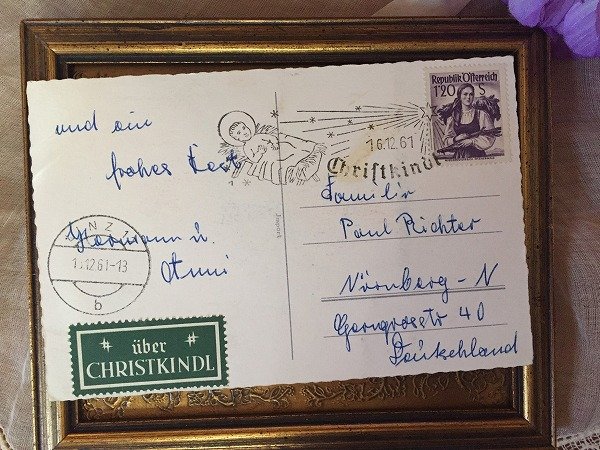 und ein
frohes Fest
Hermann u.
Anni
LINZ
1 .12.61-13
b
über
CHRISTKINDL
Import
16.12.61
Christkindl
Republik Österreich
1'20 S
Familie
Paul Richter
Nürnberg-N
40
Deutschland